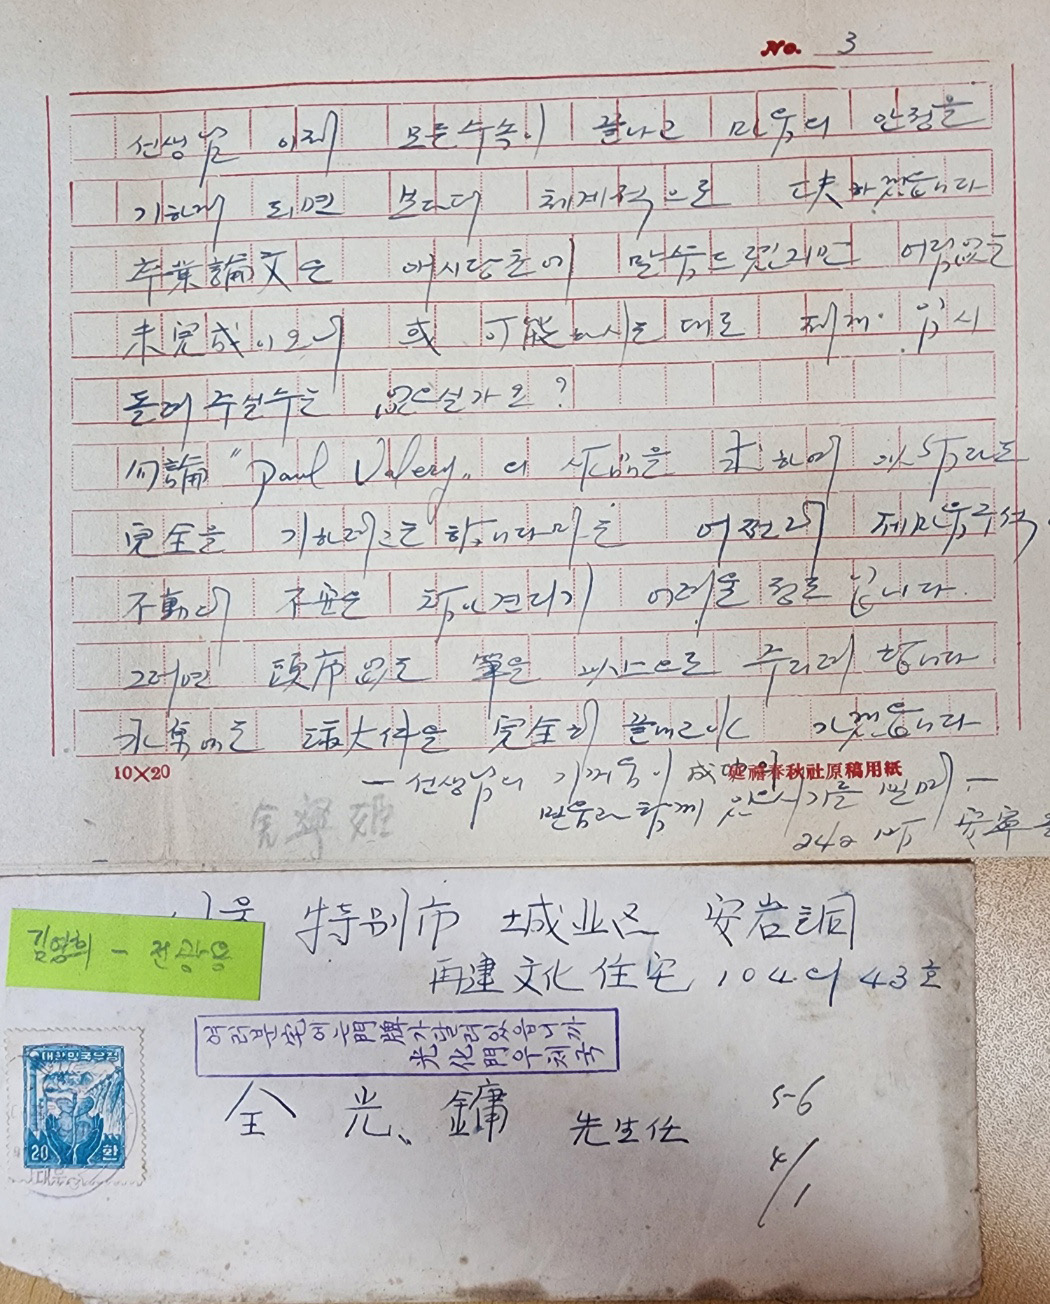 No. 3
선생님 이제 모든 수속이 끝나고 마음의 안정을
기하게 되면 보다 더 체계적으로 工夫하겠읍니다
卒業論文은 애시당초에 말씀드렸지만 어림없는
未完成이오니 或 可能하시는대로 제게 임시
돌려 주실수는 없으실가요?
勿論 "Paul Valery"의 作品을 求하여
完全을 기하려고는 합니다마는 어쩐지
不動의 不安은 참아 견디기 어려울 정도입니다.
그러면 頭序없는 筆을 以上으로 주리려 합니다
大 을 完全히 끝내고야 가겠읍니다
10×20
延禧春秋社原稿用紙
— 선생님의 기꺼움이 成功의
믿음과 함께 있으시기를 빌며 —
서울 特別市 城北区 安岩洞
再建 文化 住宅 104의 43호
김영희 - 전광용
여러분宅에는門牌가달려있읍니까
光化門우체국
대한민국우정
20 환
全 光 鏞 先生任
5-6
4/1